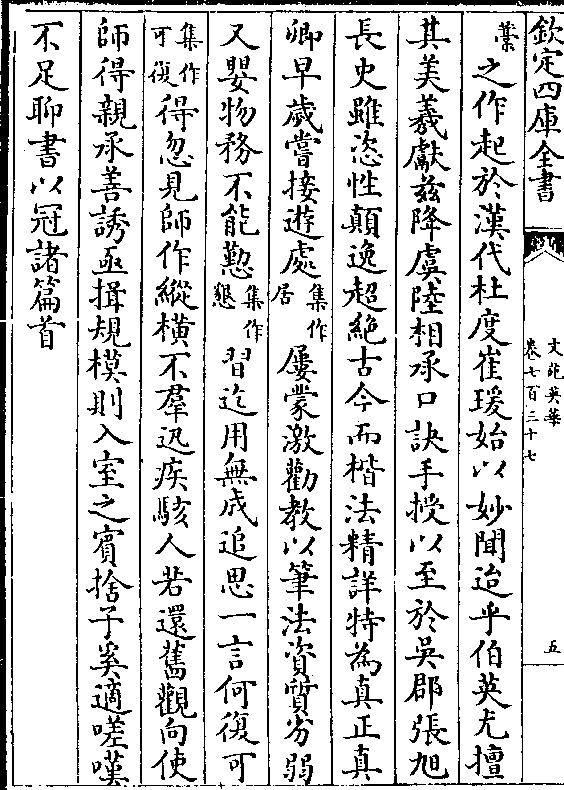 欽定四庫全書
文苑英華
卷七百三十七
五
藁之作起於漢代杜度崔瑗始以妙聞迨乎伯英尤擅
其美羲獻茲降虞陸相承口訣手授以至於吳郡張旭
長史雖恣性顛逸超絕古今而楷法精詳特為真正真
卿早歲嘗接遊處集作居屢蒙激勸教以筆法資質劣弱
又嬰物務不能懃集作懇習迄用無成追思一言何復可
集作可復得忽見師作縱橫不羣迅疾駭人若還舊觀向使
師得親承善誘亟揖規模則入室之賓捨子奚適嗟嘆
不足聊書以冠諸篇首